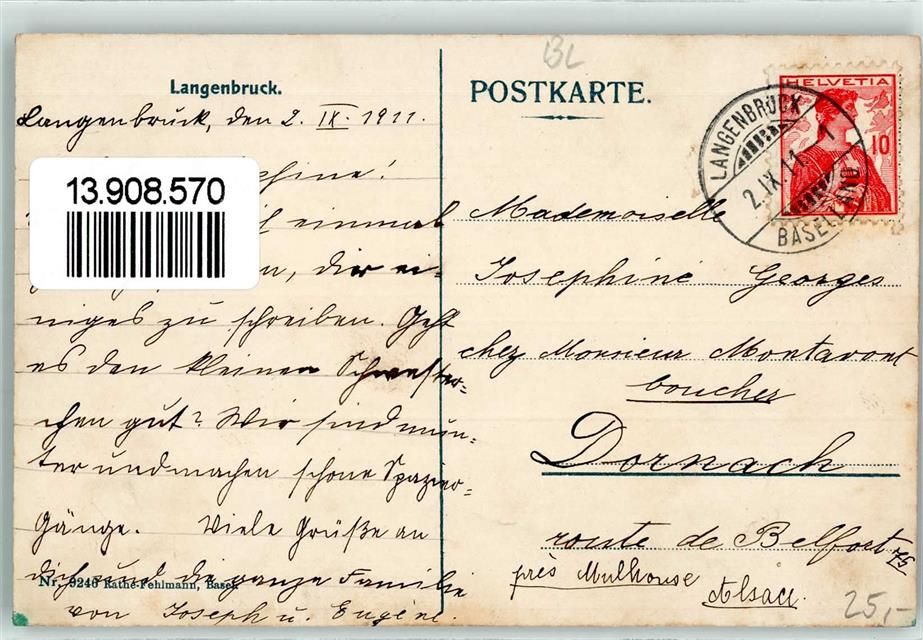 BL
Langenbruck.
Langenbruck, den 2. IX. 1911.
13.908.570
einmal
der ei-
niges zu schreiben. Geht
es den kleinen Schwester-
chen gut? Wir sind mun-
ter und machen schöne Spazier-
Gänge. Viele Grüße an
dich und die ganze Familie
von Joseph u. Eugène.
Nr. 9240 Rathe-Fehlmann, Basel
POSTKARTE.
HELVETIA
10
LANGENBRUCK
2.IX.11. 1
BASELLAND
Mademoiselle
Josephine Georges
chez Monsieur Montavont
boucher
Dornach
route de Belfort 75
près Mulhouse
Alsace.
25,-